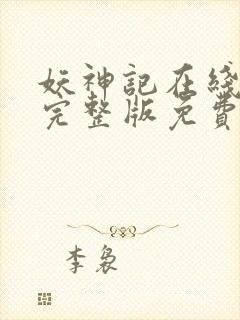 妖神記在綫
完整版免費
李裊